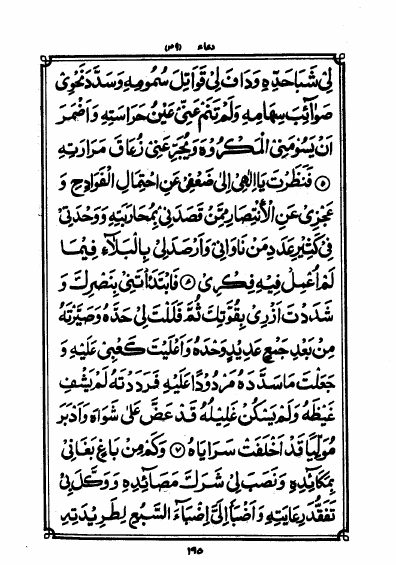 دعاء (۴۹)
لِيْ شَبَا حَدِّهٖ وَدَافَ لِيْ قَوَاتِلَ سُمُوْمِهٖ وَسَدَّدَ نَحْوِيْ
صَوَآئِبَ سِهَامِهٖ وَلَمْ تَنَمْ عَنِّيْ عَيْنُ حِرَاسَتِهٖ وَاَضْمَرَ
اَنْ يَسُوْمَنِيَ الْمَكْرُوْهَ وَيُجَرِّعَنِيْ زُعَاقَ مَرَارَتِهٖ
۵ فَنَظَرْتَ يَا اِلٰهِيْ اِلٰى ضَعْفِيْ عَنِ احْتِمَالِ الْفَوَادِحِ وَ
عَجْزِيْ عَنِ الْاِنْتِصَارِ مِمَّنْ قَصَدَنِيْ بِمُحَارَبَتِهٖ وَوَحْدَتِيْ
فِيْ كَثِيْرِ عَدَدِ مَنْ نَاوَانِيْ وَاَرْصَدَ لِيْ بِالْبَلَآءِ فِيْمَا
لَمْ اُعْمِلْ فِيْهِ فِكْرِيْ ۶ فَابْتَدَاْتَنِيْ بِنَصْرِكَ وَ
شَدَدْتَ اَزْرِيْ بِقُوَّتِكَ ثُمَّ فَلَلْتَ لِيْ حَدَّهٗ وَصَيَّرْتَهٗ
مِنْ بَعْدِ جَمْعٍ عَدِيْدٍ وَحْدَهٗ وَاَعْلَيْتَ كَعْبِيْ عَلَيْهِ وَ
جَعَلْتَ مَا سَدَّدَهٗ مَرْدُوْدًا عَلَيْهِ فَرَدَدْتَهٗ لَمْ يَشْفِ
غَيْظَهٗ وَلَمْ يَسْكُنْ غَلِيْلُهٗ قَدْ عَضَّ عَلٰى شَوَاهُ وَاَدْبَرَ
مُوَلِّيًا قَدْ اَخْلَفَتْ سَرَايَاهُ ۷ وَكَمْ مِنْ بَاغٍ بَغَانِيْ
بِمَكَآئِدِهٖ وَنَصَبَ لِيْ شَرَكَ مَصَآئِدِهٖ وَوَكَّلَ بِيْ
تَفَقُّدَ رِعَايَتِهٖ وَاَضْبَاَ اِلَيَّ اِضْبَآءَ السَّبُعِ لِطَرِيْدَتِهٖ
۱۹۵